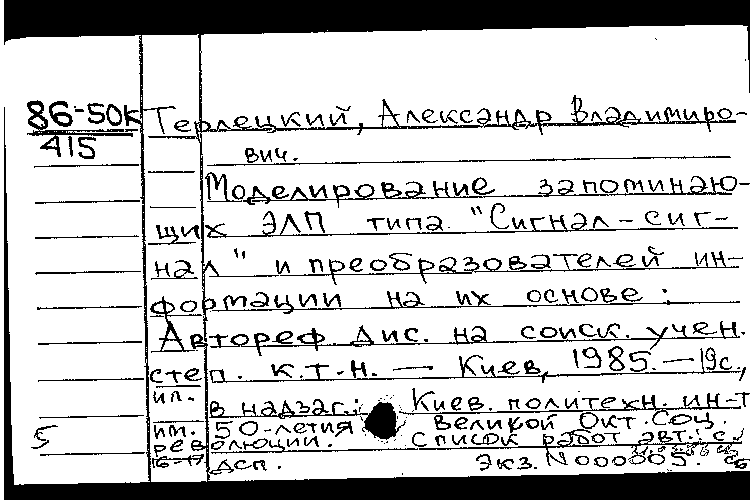 86-50К Терлецкий, Александр Владимиро-
415
вич.
Моделирование запоминаю-
щих ЭЛП типа "Сигнал-сиг-
нал" и преобразователей ин-
формации на их основе:
Автореф. дис. на соиск. учен.
степ. к.т.н. — Киев, 1985. — 19с.,
ил.
в надзаг.: Киев. политехн. ин-т
5 им. 50-летия Великой Окт. Соц.
революции. Список работ авт.: с.
16-17 дсп. Экз. N000005.